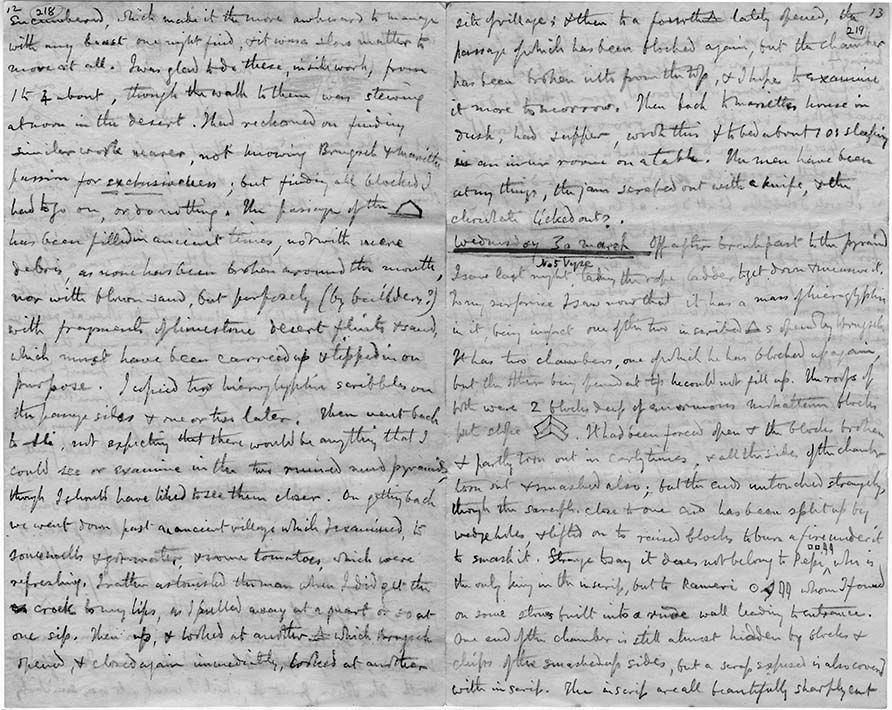 12 218
encumbered, which made it the more awkward to manage
with any beast one might find, & it was a slow matter to
move at all. I was glad to do these, inside work, from
1 to 4 about, though the walk to them was stewing
at noon in the desert. I had reckoned on finding
similar work nearer, not knowing Brugsch & Mariette's
passion for exclusiveness; but finding all blocked I
had to go on, or do nothing. The passage of the
has been filled in ancient times, not with mere
debris, as none has been broken around the mouth,
nor with blown sand, but purposely (by builders?)
with fragments of limestone desert flints & sand,
which must have been carried up & tipped in on
purpose. I copied two hieroglyphic scribbles on
the passage sides & one or two later. Then went back
to , not expecting that there would be anything that I
could see or examine in the two ruined mud pyramids,
though I should have liked to see them closer. On getting back
we went down past an ancient village which I examined, to
some wells & got water, & some tomatoes, which were
refreshing. I rather astonished the man when I did get the
crock to my lips, as I pulled away at a quart or so at
one sip. Then up, & looked at another △ which Brugsch
opened, & closed again immediately, looked at another
13
219
site of village; & then to a fourth lately opened, the
passage of which has been blocked again, but the chamber
has been broken into from the top, & I hope to examine
it more tomorrow. Then back to Mariette's house in
dusk, had supper, wrote this & to bed about 10 sleeping
in an inner room on a table. The men have been
at my things, the jam scraped out with a knife, & the
chocolate licked out?.
Wednesday 30 March Off after breakfast to the pyramid
Not Vyse
I saw last night, taking the rope ladder to get down & measure it.
To my surprise I saw now that it has a mass of hieroglyphics
in it, being in fact one of the two inscribed △s opened by Brugsch.
It has two chambers, one of which he has blocked up again,
but the other being opened at top he could not fill up. The roofs of
both were 2 blocks deep of enormous blocks
put slope . It had been forced open & the blocks broken
& partly torn out in early times, & all the sides of the chamber
torn out & smashed also; but the ends untouched strangely
though the sarcoph. close to one end has been split up by
wedge holes, & lifted on to raised blocks to burn a fire under it
to smash it. Strange to say it does not belong to Pepi, who is
the only king in the inscrip, but to Rameri whom I found
on some stones built into a rude wall leading to entrance.
One end of the chamber is still almost hidden by blocks &
chips of the smashed up sides, but a scrap exposed is also covered
with inscrip. The inscrip are all beautifully sharply cut